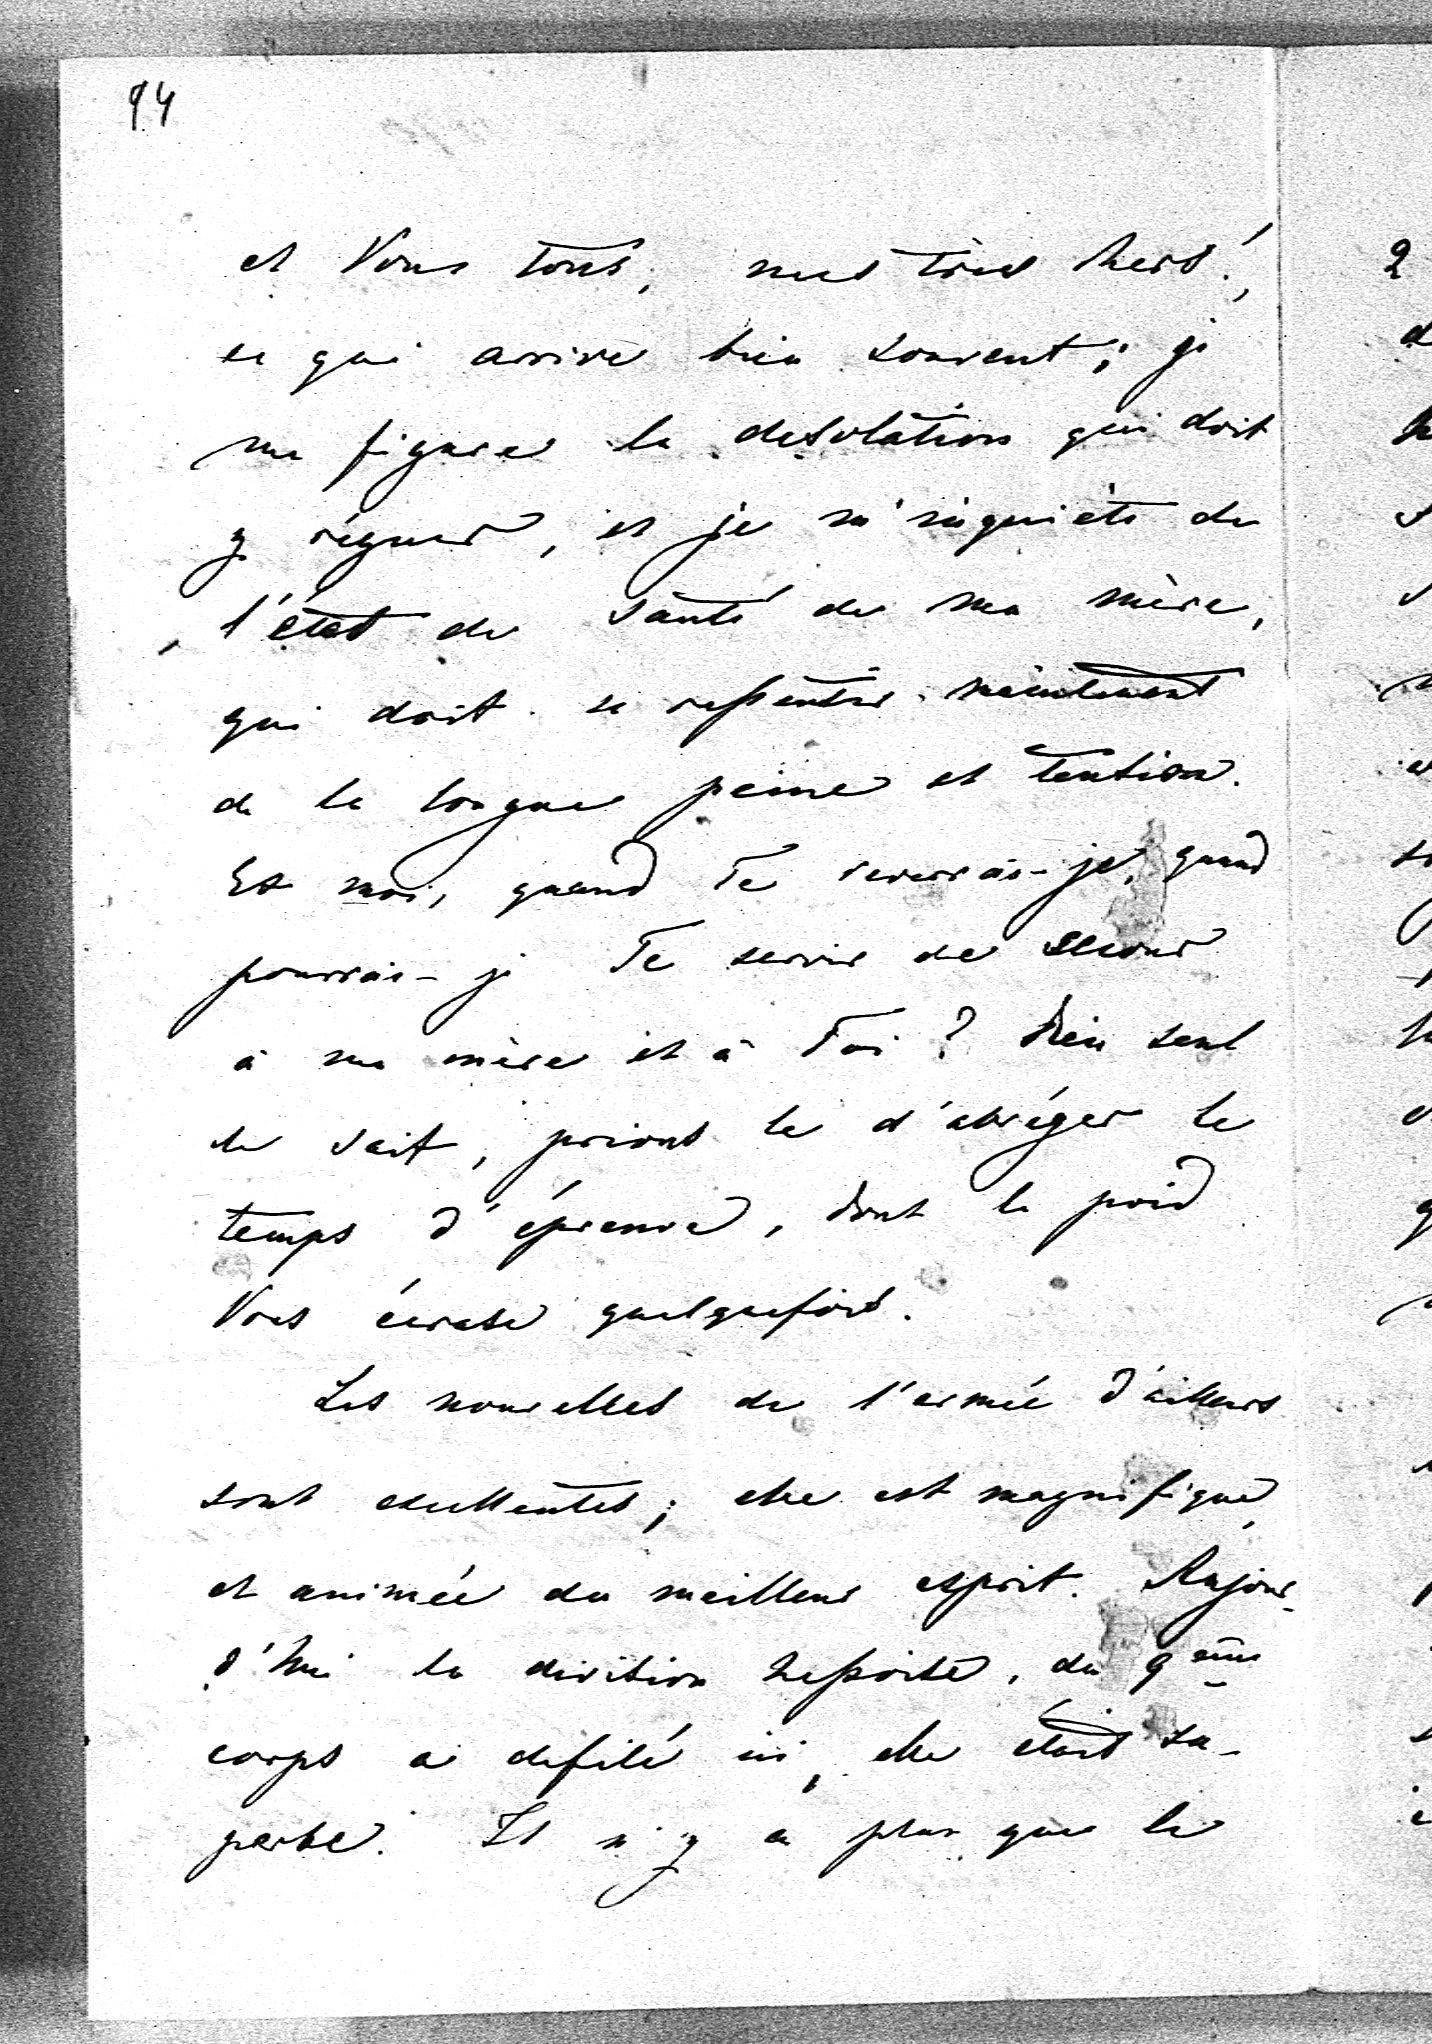 94
et Vous tous, mes très chers!,
ce qui arrive bien souvent; je
me figure la desolation qui doit
y régner, et je m'inquiéte de
l'état de santé de ma mère,
qui doit se ressentir maintenant
de la longue peine et tension.
Et moi, quand Te reverrai-je, quand
pourrai-je Te servir de secour
à ma mère et à Toi? Dieu seul
le sait, prions le d'abréger le
temps d'épreuve, dont le poid
Vous écrase quelquefois.
Les nouvelles de l'armée d'ailleurs
sont exellentes; elle est magnifique,
et animée du meilleur esprit. Aujour-
d'hui la division, du 9ème
corps a defilé ici, elle était su-
perbe. Il n'y a plus que le